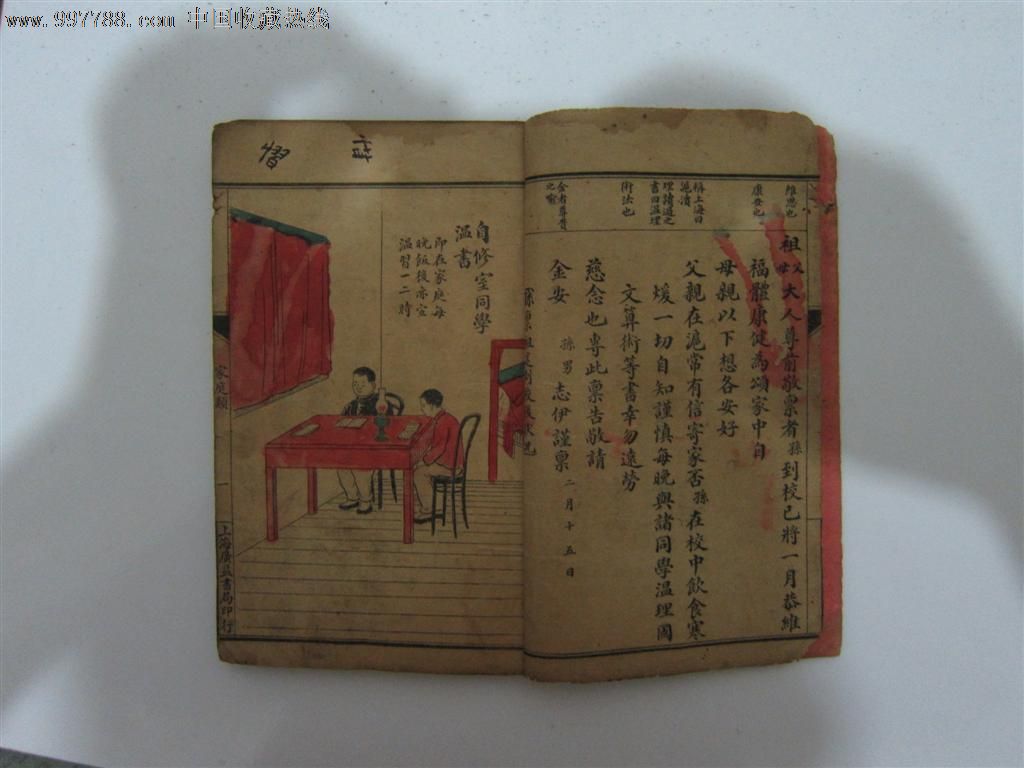 www.997788.com 中国收藏热线
維思也
康安也
稱上海曰滬瀆
理讀過之書曰温理
術法也
金者尊貴之喻
祖父母大人尊前敬禀者孫到校已將一月恭維
福體康健為頌家中自
母親以下想各安好
父親在滬常有信寄家否孫在校中飲食寒
煖一切自知謹慎每晚與諸同學温理國
文算術等書幸勿遠勞
慈念也專此禀告敬請
金安
孫男志伊謹禀 二月十五日
習
自修室同學
温書
即在家庭每
晚飯後亦宜
温習一二時
家庭類
一
上海廣益書局印行